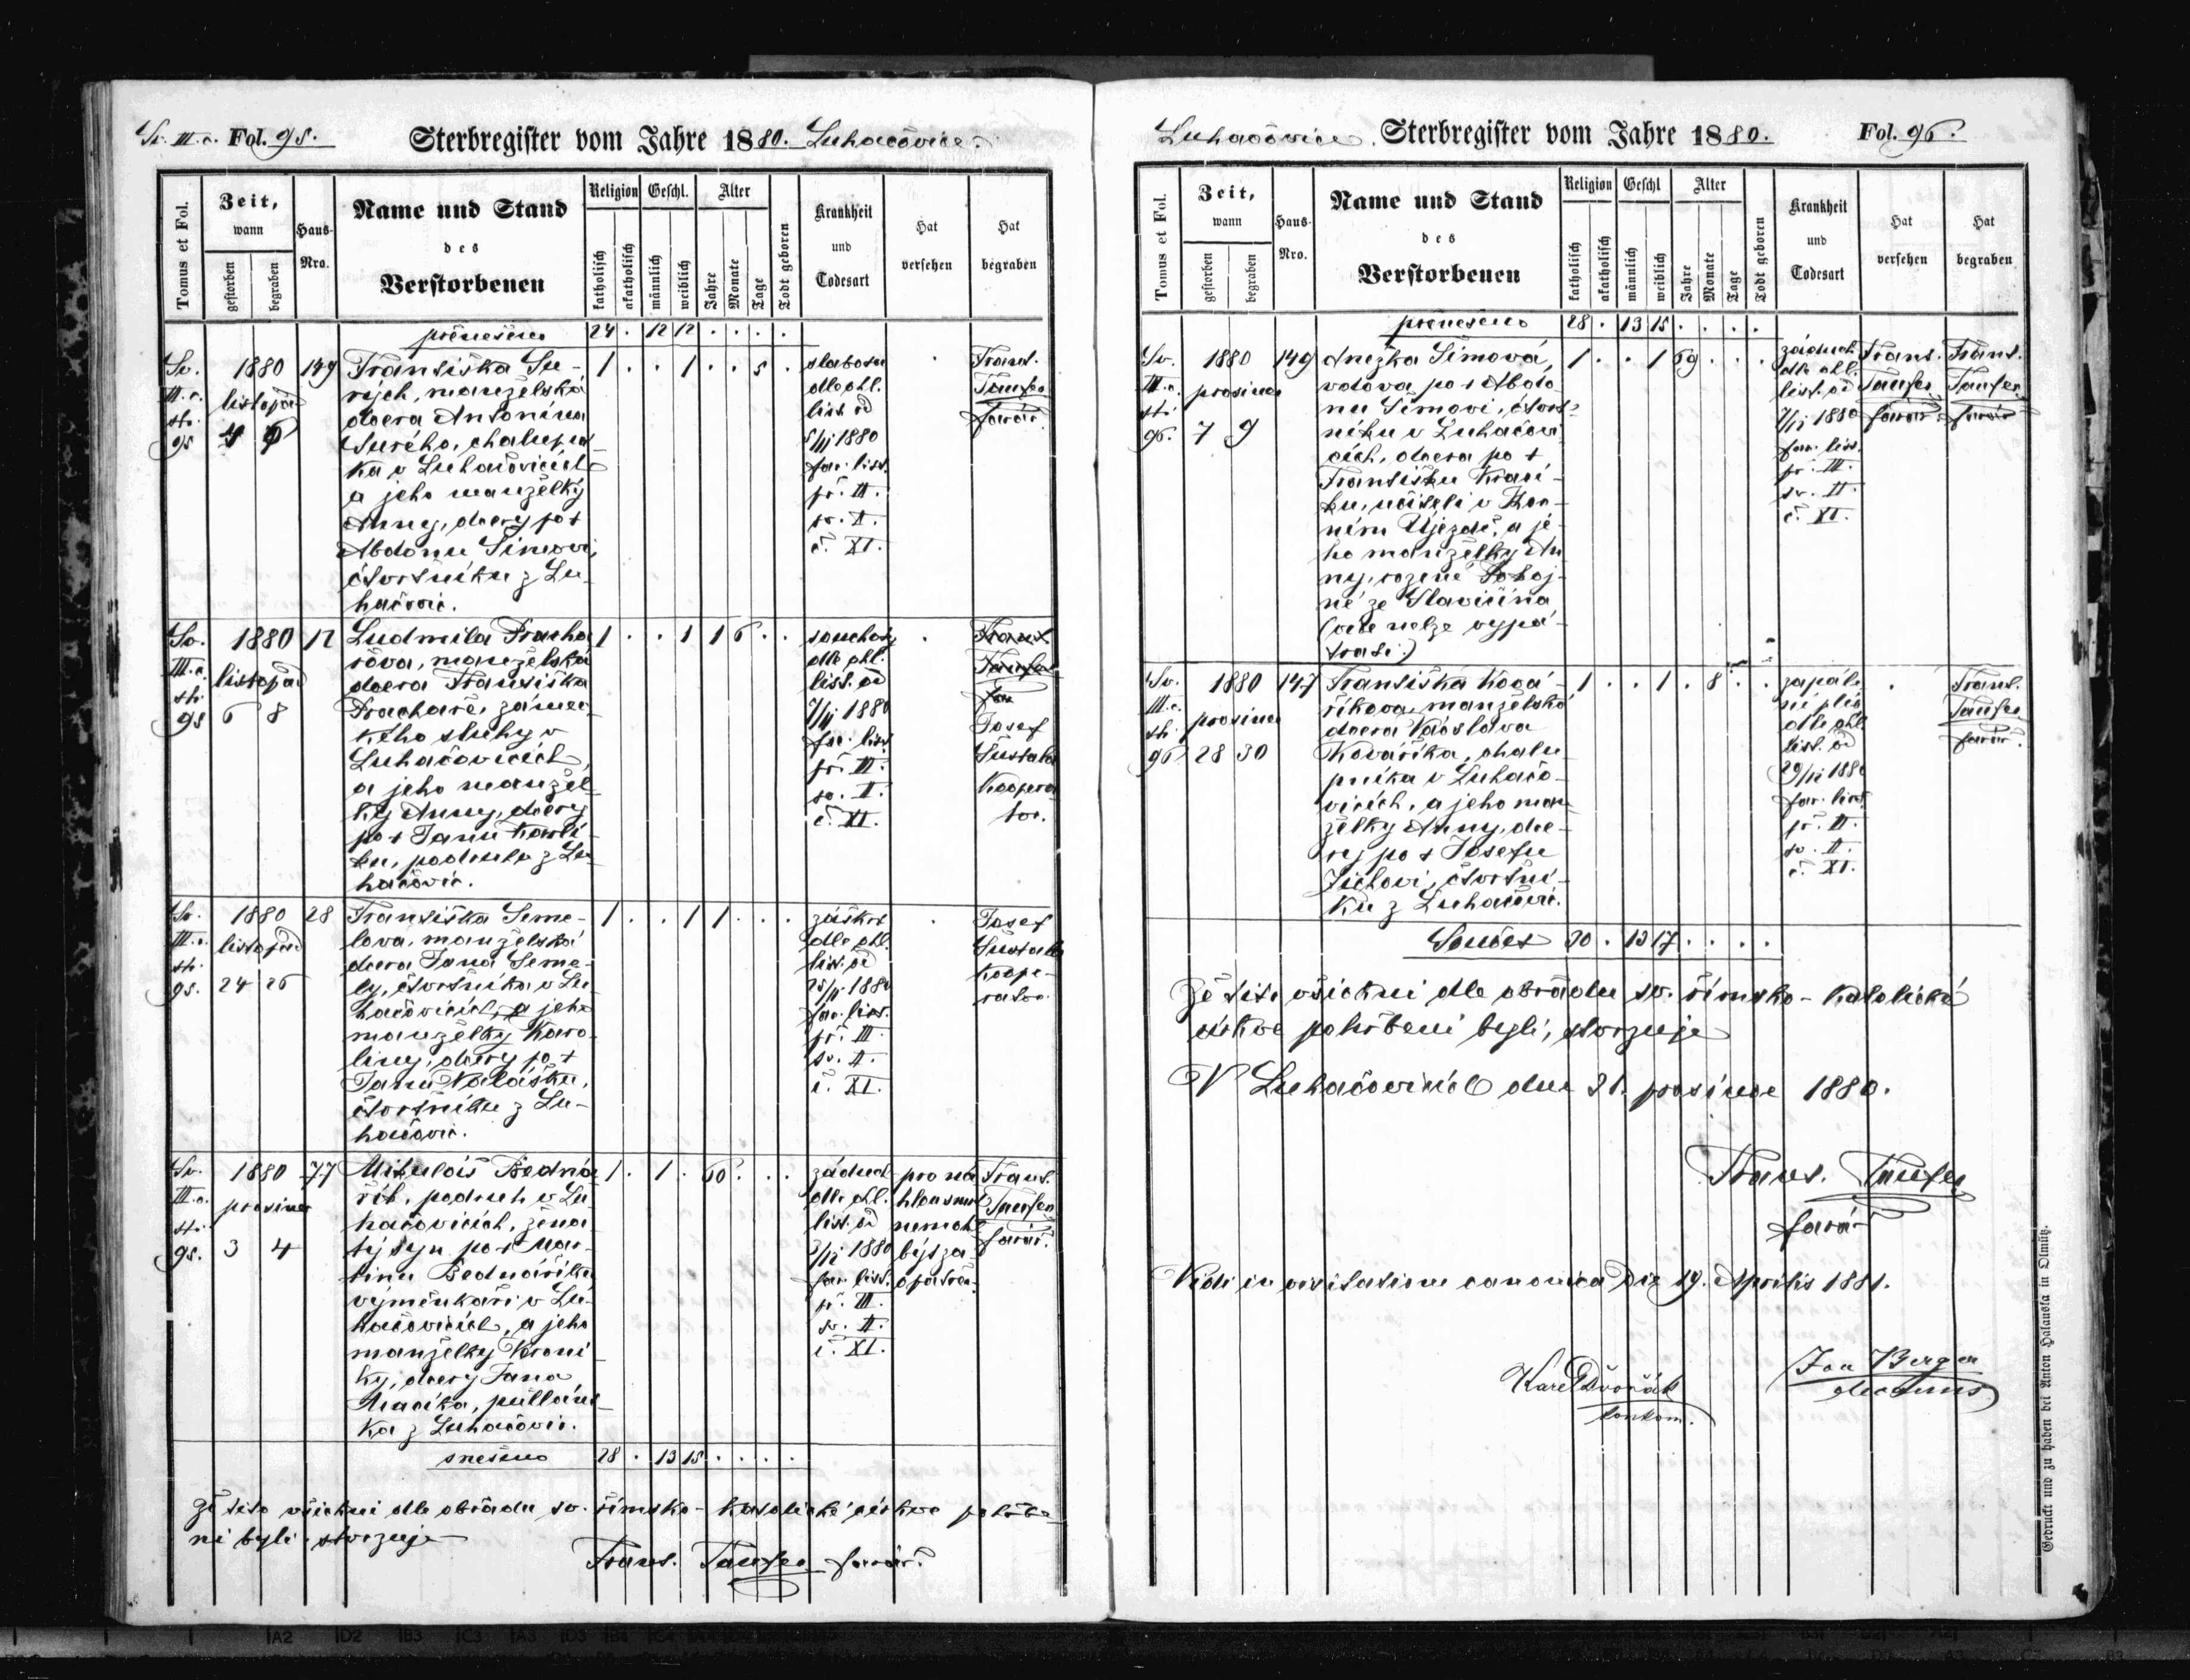 Sv. III. c. Fol. 95. Sterbregister vom Jahre 1880. Luhačovice.
Tomus et Fol.
Zeit,
wann
gestorben
begraben
Haus-
Nro.
Name und Stand
des
Verstorbenen
Religion
katholisch
akatholisch
Geschl.
männlich
weiblich
Alter
Jahre
Monate
Tage
Todt geboren
Krankheit
und
Todesart
Hat
versehen
Hat
begraben
přenešeno 24 . 12 12 . . . .
Sv.
III. c.
str.
95
1880
listopad
149
Františka Su-
rých, manželská
dcera Antonína
Surého, chalupní-
ka v Luhačovicích
a jeho manželky
Anny, dcery po †
Abdonu Šimovi,
čtvrtníku z Lu-
hačovic.
1 . . 1 . . 5 .
slabostí
dle ohl.
list. od
5/11 1880
far. list.
př. III.
sv. II.
č. XI.
Frant.
Taufer
farář.
Sv.
III. c.
str.
95
1880
listopad
6 8
12
Ludmila Pracha-
řova, manželská
dcera Františka
Prachaře, zámec-
kého sluhy v
Luhačovicích,
a jeho manžel-
ky Anny, dcery
po † Janu Karlí-
ku, podruhu z Lu-
hačovic.
1 . . 1 1 6 . .
souchoty
dle ohl.
list. od
7/11 1880
far. list.
př. III.
sv. II.
č. XI.
Frant.
Taufer
far
Josef
Šustala
Koopera-
tor.
Sv.
III. c.
str.
95.
1880
listopad
24 26
28
Františka Seme-
lova, manželská
dcera Jana Seme-
ly, čtvrtníka v Lu-
hačovicích, a jeho
manželky Karo-
liny, dcery po †
Janu Valášku,
čtvrtníku z Lu-
hačovic.
1 . . 1 1 . . .
záškrt
dle ohl.
list. od
25/11 1880
far. list.
př. III.
sv. II.
č. XI.
Josef
Šustala
Koope-
rator.
Sv.
III. c.
str.
95.
1880
prosinec
3 4
77
Mikuláš Bedna-
řík, podruh v Lu-
hačovicích, žena-
tý syn po † Mar-
tinu Bednaříku
výměnkáři v Lu-
hačovicích, a jeho
manželky Veroni-
ky, dcery Jana
Mačka, půllání-
ka z Luhačovic.
1 . 1 . 60 . . .
záduch
dle ohl.
list. od
3/12 1880
far. list.
př. III.
sv. II.
č. XI.
pro ná-
hlou smrt
nemohl
být za-
opatřen.
Frant.
Taufer
farář.
snešeno 28 . 13 15 . . . .
Že tito všickni dle obřadu sv. římsko-katolické církve pohřbe-
ni byli, stvrzuje
Frant. Taufer farář.
Luhačovice. Sterbregister vom Jahre 1880. Fol. 96.
Tomus et Fol.
Zeit,
wann
gestorben
begraben
Haus-
Nro.
Name und Stand
des
Verstorbenen
Religion
katholisch
akatholisch
Geschl
männlich
weiblich
Alter
Jahre
Monate
Tage
Todt geboren
Krankheit
und
Todesart
Hat
versehen
Hat
begraben
přenešeno 28 . 13 15 . . . .
Sv.
III. c.
str.
96.
1880
prosinec
7 9
149
Anežka Šimová,
vdova po † Abdo-
nu Šimovi, čtvrt-
níku v Luhačovi-
cích, dcera po †
Františku Krají-
ku, učiteli v Hor-
ním Újezdě, a je-
ho manželky An-
ny, rozené Pokoj-
né ze Slavičína
(více nelze vypá-
trati.)
1 . . 1 69 . . .
záduch
dle ohl.
list. od
7/12 1880
far. list.
př. III.
sv. II.
č. XI.
Frant.
Taufer
farář.
Frant.
Taufer
farář
Sv.
III. c.
str.
96
1880
prosinec
28 30
147
Františka Ková-
říkova, manželská
dcera Václava
Kováříka, chalu-
pníka v Luhačo-
vicích, a jeho man-
želky Anny, dce-
ry po † Josefu
čtvrtní-
ku z Luhačovic.
1 . . 1 . 8 . .
zapále-
ní plic
dle ohl.
list. od
29/12 1880
far. list.
př. III.
sv. II.
č. XI.
Frant.
Taufer
farář.
Součet 30 . 13 17 . . . .
Že tito všickni dle obřadu sv. římsko-katolické
církve pohřbeni byli, stvrzuje
V Luhačovicích dne 31. prosince 1880.
Frant. Taufer
farář
Vidi in visitatione canonica Die 19. Aprilis 1881.
Karel Dvořák
Jan Berger
decanus
Gedruckt und zu haben bei Anton Halauska in Olmütz.